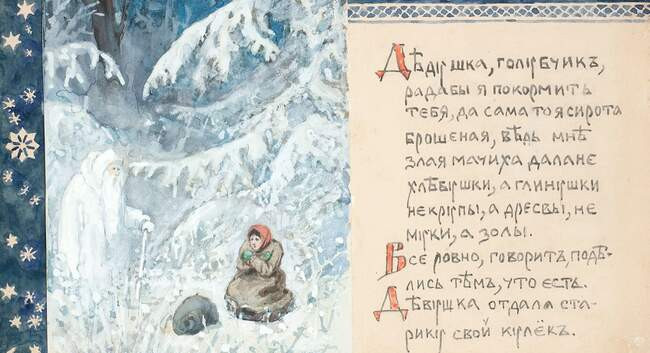 Дѣдушка, голубчикъ,
рада бы я покормить
тебя, да сама то я сирота
брошеная, вѣдь мнѣ
злая мачиха дала не
хлѣбушки, а глинушки
не крупы, а дресвы, не
муки, а золы.
Все ровно, говоритъ, подѣ-
лись тѣмъ, что есть.
Дѣвушка отдала ста-
рику свой кулёкъ.